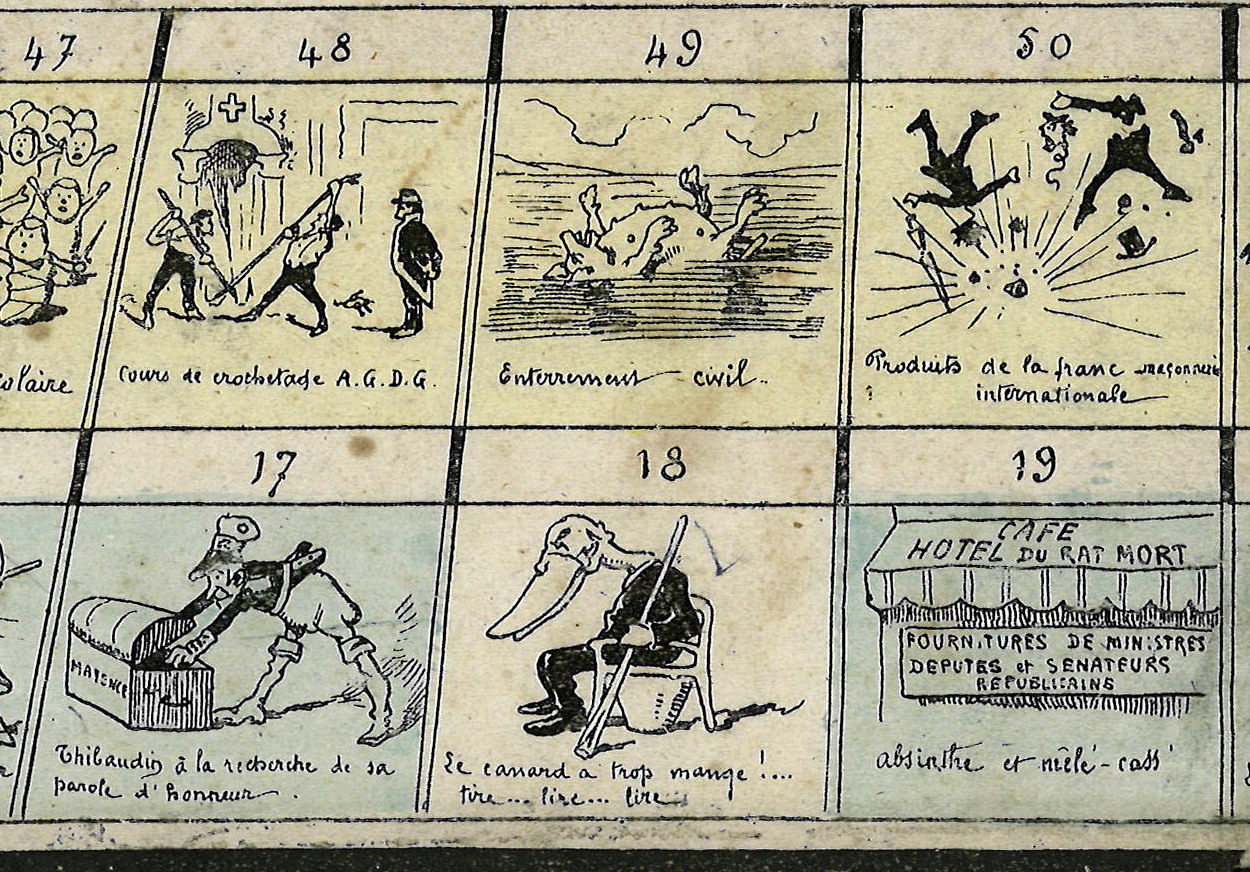 47
48
49
50
colaire
Cours de crochetage A.G.D.G.
Enterrement civil..
Produits de la franc maçonnerie
internationale
17
18
19
MAYENCE
CAFE
HOTEL DU RAT MORT
FOURNITURES DE MINISTRES
DEPUTES et SENATEURS
REPUBLICAINS
Thibaudin à la recherche de sa
parole d'honneur.
Le canard a trop mangé !...
tire... lire... lire
absinthe et mêlé-cass'